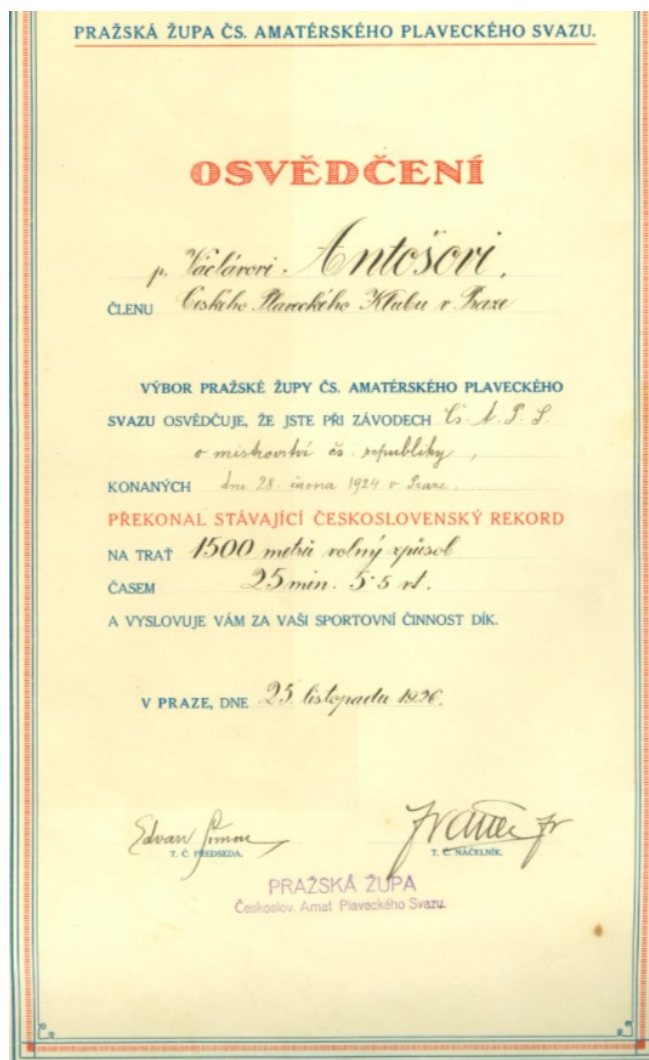 PRAŽSKÁ ŽUPA ČS. AMATÉRSKÉHO PLAVECKÉHO SVAZU.
OSVĚDČENÍ
p. Václavovi Antošovi,
ČLENU Českého Plaveckého Klubu v Praze
VÝBOR PRAŽSKÉ ŽUPY ČS. AMATÉRSKÉHO PLAVECKÉHO
SVAZU OSVĚDČUJE, ŽE JSTE PŘI ZÁVODECH Čs. A. P. S.
o mistrovství čs. republiky,
KONANÝCH dne 28. června 1924 v Praze.
PŘEKONAL STÁVAJÍCÍ ČESKOSLOVENSKÝ REKORD
NA TRAŤ 1500 metrů volný způsob
ČASEM 25 min. 5·5 vt.
A VYSLOVUJE VÁM ZA VAŠI SPORTOVNÍ ČINNOST DÍK.
V PRAZE, DNE 25. listopadu 1926.
T. Č. PŘEDSEDA. T. Č. NÁČELNÍK.
PRAŽSKÁ ŽUPA
Českoslov. Amat. Plaveckého Svazu.